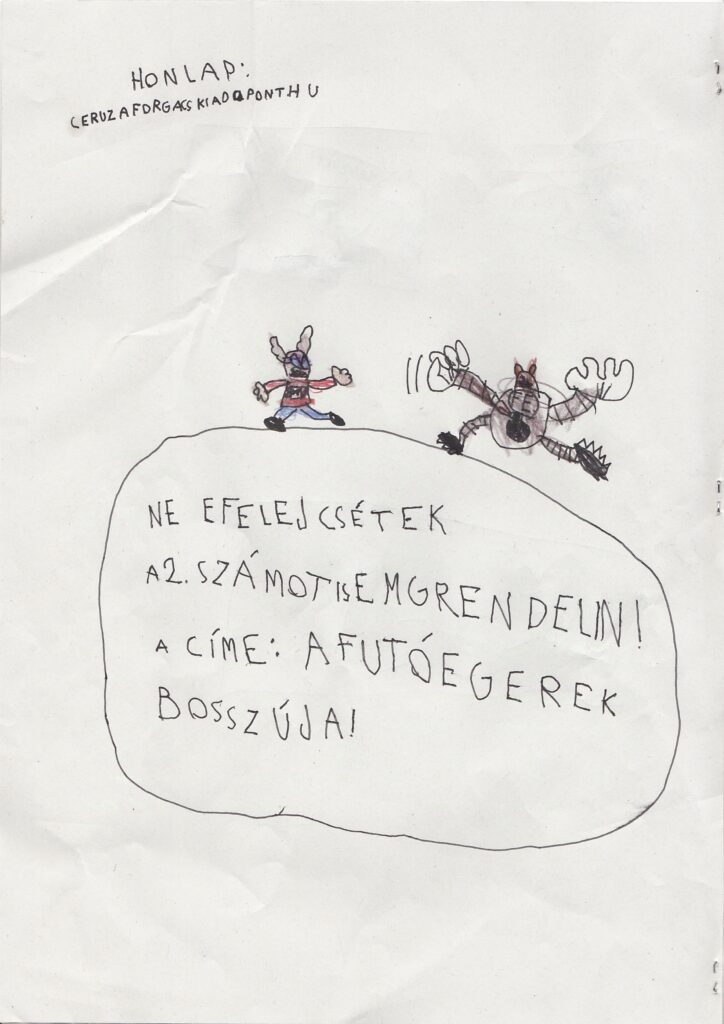 HONLAP:
CERUZAFORGACSKIADOPONTHU
NE EFELEJCSÉTEK
A 2. SZÁMOT IS EMGRENDELIN!
A CÍME: A FUTÓEGEREK
BOSSZÚJA!